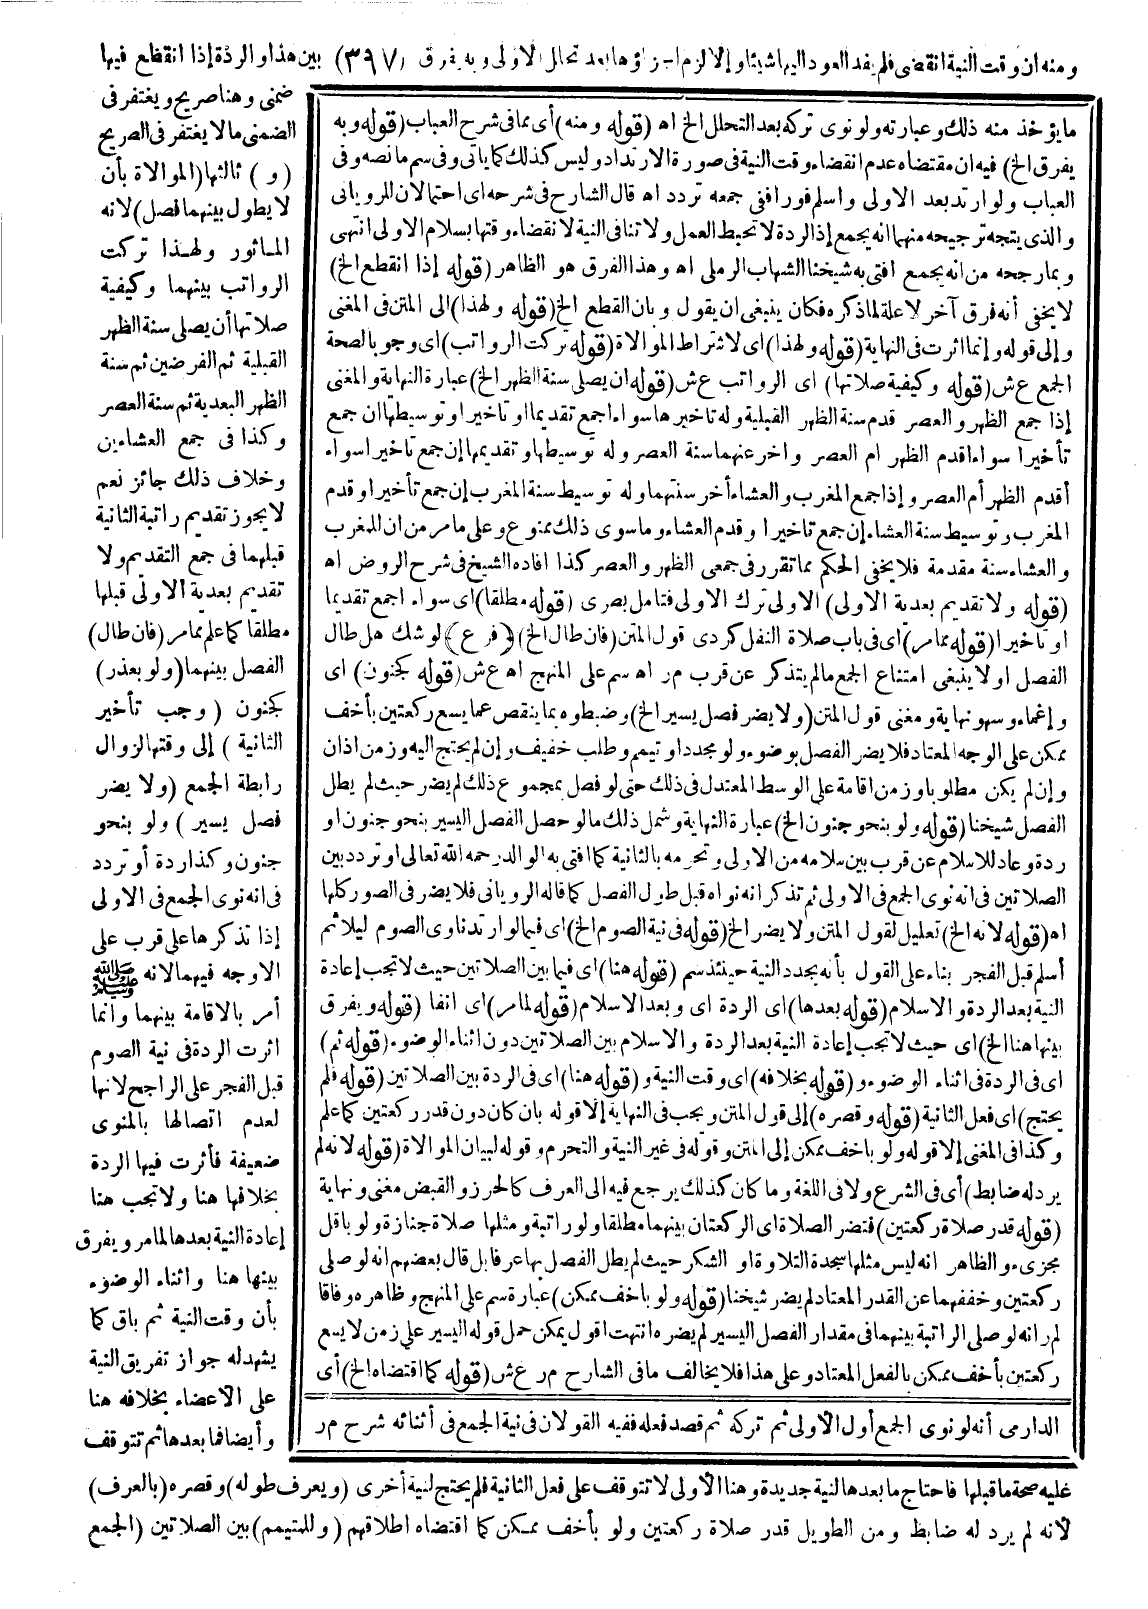 ومنه ان وقت النية انقضى فلم يفد العود اليها شيئا وإلا لزم إجزاؤها بعد تحلل الاولى وبه يفرق (٣٩٧) بين هذا والردة إذا انقطع فيها
ضمنى وهنا صريح ويغتفر فى
الضمنى مالا يغتفر فى الصريح
(و) ثالثها (الموالاة بأن
لا يطول بينهما فصل) لانه
المأثور ولهذا تركت
الرواتب بينهما وكيفية
صلاتها أن يصلى سنة الظهر
القبلية ثم الفرضين ثم سنة
الظهر البعدية ثم سنة العصر
وكذا فى جمع العشاءين
وخلاف ذلك جائز نعم
لا يجوز تقديم راتبة الثانية
قبلهما فى جمع التقديم ولا
تقديم بعدية الاولى قبلها
مطلقا كما علم مما مر (فان طال)
الفصل بينهما (ولو بعذر)
كجنون (وجب تأخير
الثانية) إلى وقتها لزوال
رابطة الجمع (ولا يضر
فصل يسير) ولو بنحو
جنون وكذا ردة أو تردد
فى انه نوى الجمع فى الاولى
إذا تذكرها على قرب على
الاوجه فيهما لانه ﷺ
أمر بالاقامة بينهما وانما
اثرت الردة فى نية الصوم
قبل الفجر على الراجح لانها
لعدم اتصالها بالمنوى
ضعيفة فأثرت فيها الردة
بخلافها هنا ولا تجب هنا
إعادة النية بعدها لما مر ويفرق
بينها هنا واثناء الوضوء
بأن وقت النية ثم باق كما
يشهد له جواز تفريق النية
على الاعضاء بخلافه هنا
وأيضا فما بعدها ثم تتوقف
عليه صحة ما قبلها فاحتاج ما بعدها لنية جديدة وهنا الأولى لا تتوقف على فعل الثانية فلم يحتج لنية أخرى (ويعرف طوله) وقصره (بالعرف)
لانه لم يرد له ضابط ومن الطويل قدر صلاة ركعتين ولو بأخف ممكن كما اقتضاه اطلاقهم (وللمتيمم) بين الصلاتين (الجمع
ما يؤخذ منه ذلك وعبارته ولو نوى تركه بعد التحلل الخ اه (قوله ومنه) أى مما فى شرح العباب (قوله وبه
يفرق الخ) فيه ان مقتضاه عدم انقضاء وقت النية فى صورة الارتداد وليس كذلك كما ياتى وفى سم ما نصه وفى
العباب ولو ارتد بعد الاولى واسلم فورا ففى جمعه تردد اه قال الشارح فى شرحه اى احتمالان للرويانى
والذى يتجه ترجيحه منهما انه يجمع إذ الردة لا تحبط العمل ولا تنافى النية لانقضاء وقتها بسلام الاولى انتهى
وبما رجحه من انه يجمع افتى به شيخنا الشهاب الرملى اه وهذا الفرق هو الظاهر (قوله إذا انقطع الخ)
لا يخفى أنه فرق آخر لا علة لما ذكره فكان ينبغى ان يقول وبان القطع الخ (قوله ولهذا) الى المتن فى المغنى
وإلى قوله وإنما اثرت فى النهاية (قوله ولهذا) اى لاشتراط الموالاة (قوله تركت الرواتب) اى وجوبا لصحة
الجمع ع ش (قوله وكيفية صلاتها) اى الرواتب ع ش (قوله ان يصلى سنة الظهر الخ) عبارة النهاية والمغنى
إذا جمع الظهر والعصر قدم سنة الظهر القبلية وله تاخيرها سواء اجمع تقديما او تاخيرا وتوسيطها ان جمع
تأخيرا سواء اقدم الظهر ام العصر واخر عنهما سنة العصر وله توسيطها وتقديمها إن جمع تاخيرا سواء
أقدم الظهر أم العصر وإذا جمع المغرب والعشاء أخر سنتهما وله توسيط سنة المغرب إن جمع تأخيرا وقدم
المغرب وتوسيط سنة العشاء إن جمع تاخيرا وقدم العشاء وما سوى ذلك ممنوع وعلى ما مر من ان للمغرب
والعشاء سنة مقدمة فلا يخفى الحكم مما تقرر فى جمعى الظهر والعصر كذا افاده الشيخ فى شرح الروض اه
(قوله ولا تقديم بعدية الاولى) الاولى ترك الاولى فتامل بصرى (قوله مطلقا) اى سواء اجمع تقديما
او تاخيرا (قوله مما مر) اى فى باب صلاة النفل كردى قول المتن (فان طال الخ) (فرع) لو شك هل طال
الفصل او لا ينبغى امتناع الجمع ما لم يتذكر عن قرب م ر اه سم على المنهج اه ع ش (قوله كجنون) اى
وإغماء وسهو نهاية ومغنى قول المتن (ولا يضر فصل يسير الخ) وضبطوه بما ينقص عما يسع ركعتين بأخف
ممكن على الوجه المعتاد فلا يضر الفصل بوضوء ولو مجددا وتيمم وطلب خفيف وإن لم يحتج اليه وزمن اذان
وإن لم يكن مطلوبا وزمن اقامة على الوسط المعتدل فى ذلك حتى لو فصل بمجموع ذلك لم يضر حيث لم يطل
الفصل شيخنا (قوله ولو بنحو جنون الخ) عبارة النهاية وشمل ذلك ما لو حصل الفصل اليسير بنحو جنون او
ردة وعاد للاسلام عن قرب بين سلامه من الاولى وتحرمه بالثانية كما افتى به الوالد رحمه الله تعالى او تردد بين
الصلاتين فى انه نوى الجمع فى الاولى ثم تذكر انه نواه قبل طول الفصل كما قاله الرويانى فلا يضر فى الصور كلها
اه (قوله لانه الخ) تعليل لقول المتن ولا يضر الخ (قوله فى نية الصوم الخ) اى فيما لو ارتد ناوى الصوم ليلا ثم
أسلم قبل الفجر بناء على القول بأنه يجدد النية حينئذ سم (قوله هنا) اى فيما بين الصلاتين حيث لا تجب إعادة
النية بعد الردة والاسلام (قوله بعدها) اى الردة اى وبعد الاسلام (قوله لما مر) اى انفا (قوله ويفرق
بينها هنا الخ) اى حيث لا تجب إعادة النية بعد الردة والاسلام بين الصلاتين دون اثناء الوضوء (قوله ثم)
اى فى الردة فى اثناء الوضوء و(قوله بخلافه) اى وقت النية و(قوله هنا) اى فى الردة بين الصلاتين (قوله فلم
يحتج) اى فعل الثانية (قوله وقصره) إلى قول المتن ويجب فى النهاية إلا قوله بان كان دون قدر ركعتين كما علم
وكذا فى المغنى إلا قوله ولو باخف ممكن إلى المتن وقوله فى غير النية والتحرم وقوله لبيان الموالاة (قوله لانه لم
يرد له ضابط) أى فى الشرع ولا فى اللغة وما كان كذلك يرجع فيه الى العرف كالحرز والقبض مغنى ونهاية
(قوله قدر صلاة ركعتين) فتضر الصلاة اى الركعتان بينهما مطلقا ولو راتبة ومثلها صلاة جنازة ولو باقل
مجزىء والظاهر انه ليس مثلها سجدة التلاوة او الشكر حيث لم يطل الفصل بها عرفا بل قال بعضهم انه لو صلى
ركعتين وخففهما عن القدر المعتاد لم يضر شيخنا (قوله ولو باخف ممكن) عبارة سم على المنهج وظاهره وفاقا
لم ر انه لو صلى الراتبة بينهما فى مقدار الفصل اليسير لم يضره انتهت اقول يمكن حمل قوله اليسير على زمن لا يسع
ركعتين بأخف ممكن بالفعل المعتاد وعلى هذا فلا يخالف ما فى الشارح م ر ع ش (قوله كما اقتضاه الخ) أى
الدارمى أنه لو نوى الجمع أول الأولى ثم تركه ثم قصد فعله ففيه القولان فى نية الجمع فى أثنائه شرح م ر